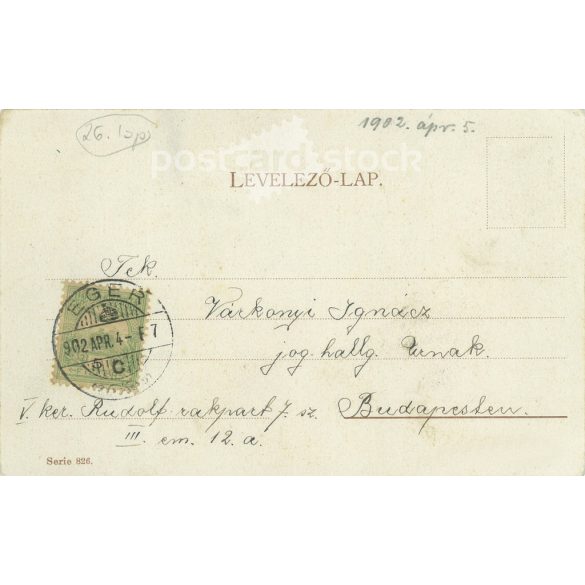 26. lap
1902. ápr. 5.
postcard stock
LEVELEZŐ-LAP.
Tek.
EGER
902 APR. 4
C
Várkonyi Ignácz
jog. hallg. Urnak.
V. ker. Rudolf rakpart 7. sz. Budapesten.
III. em. 12. a.
Serie 826.